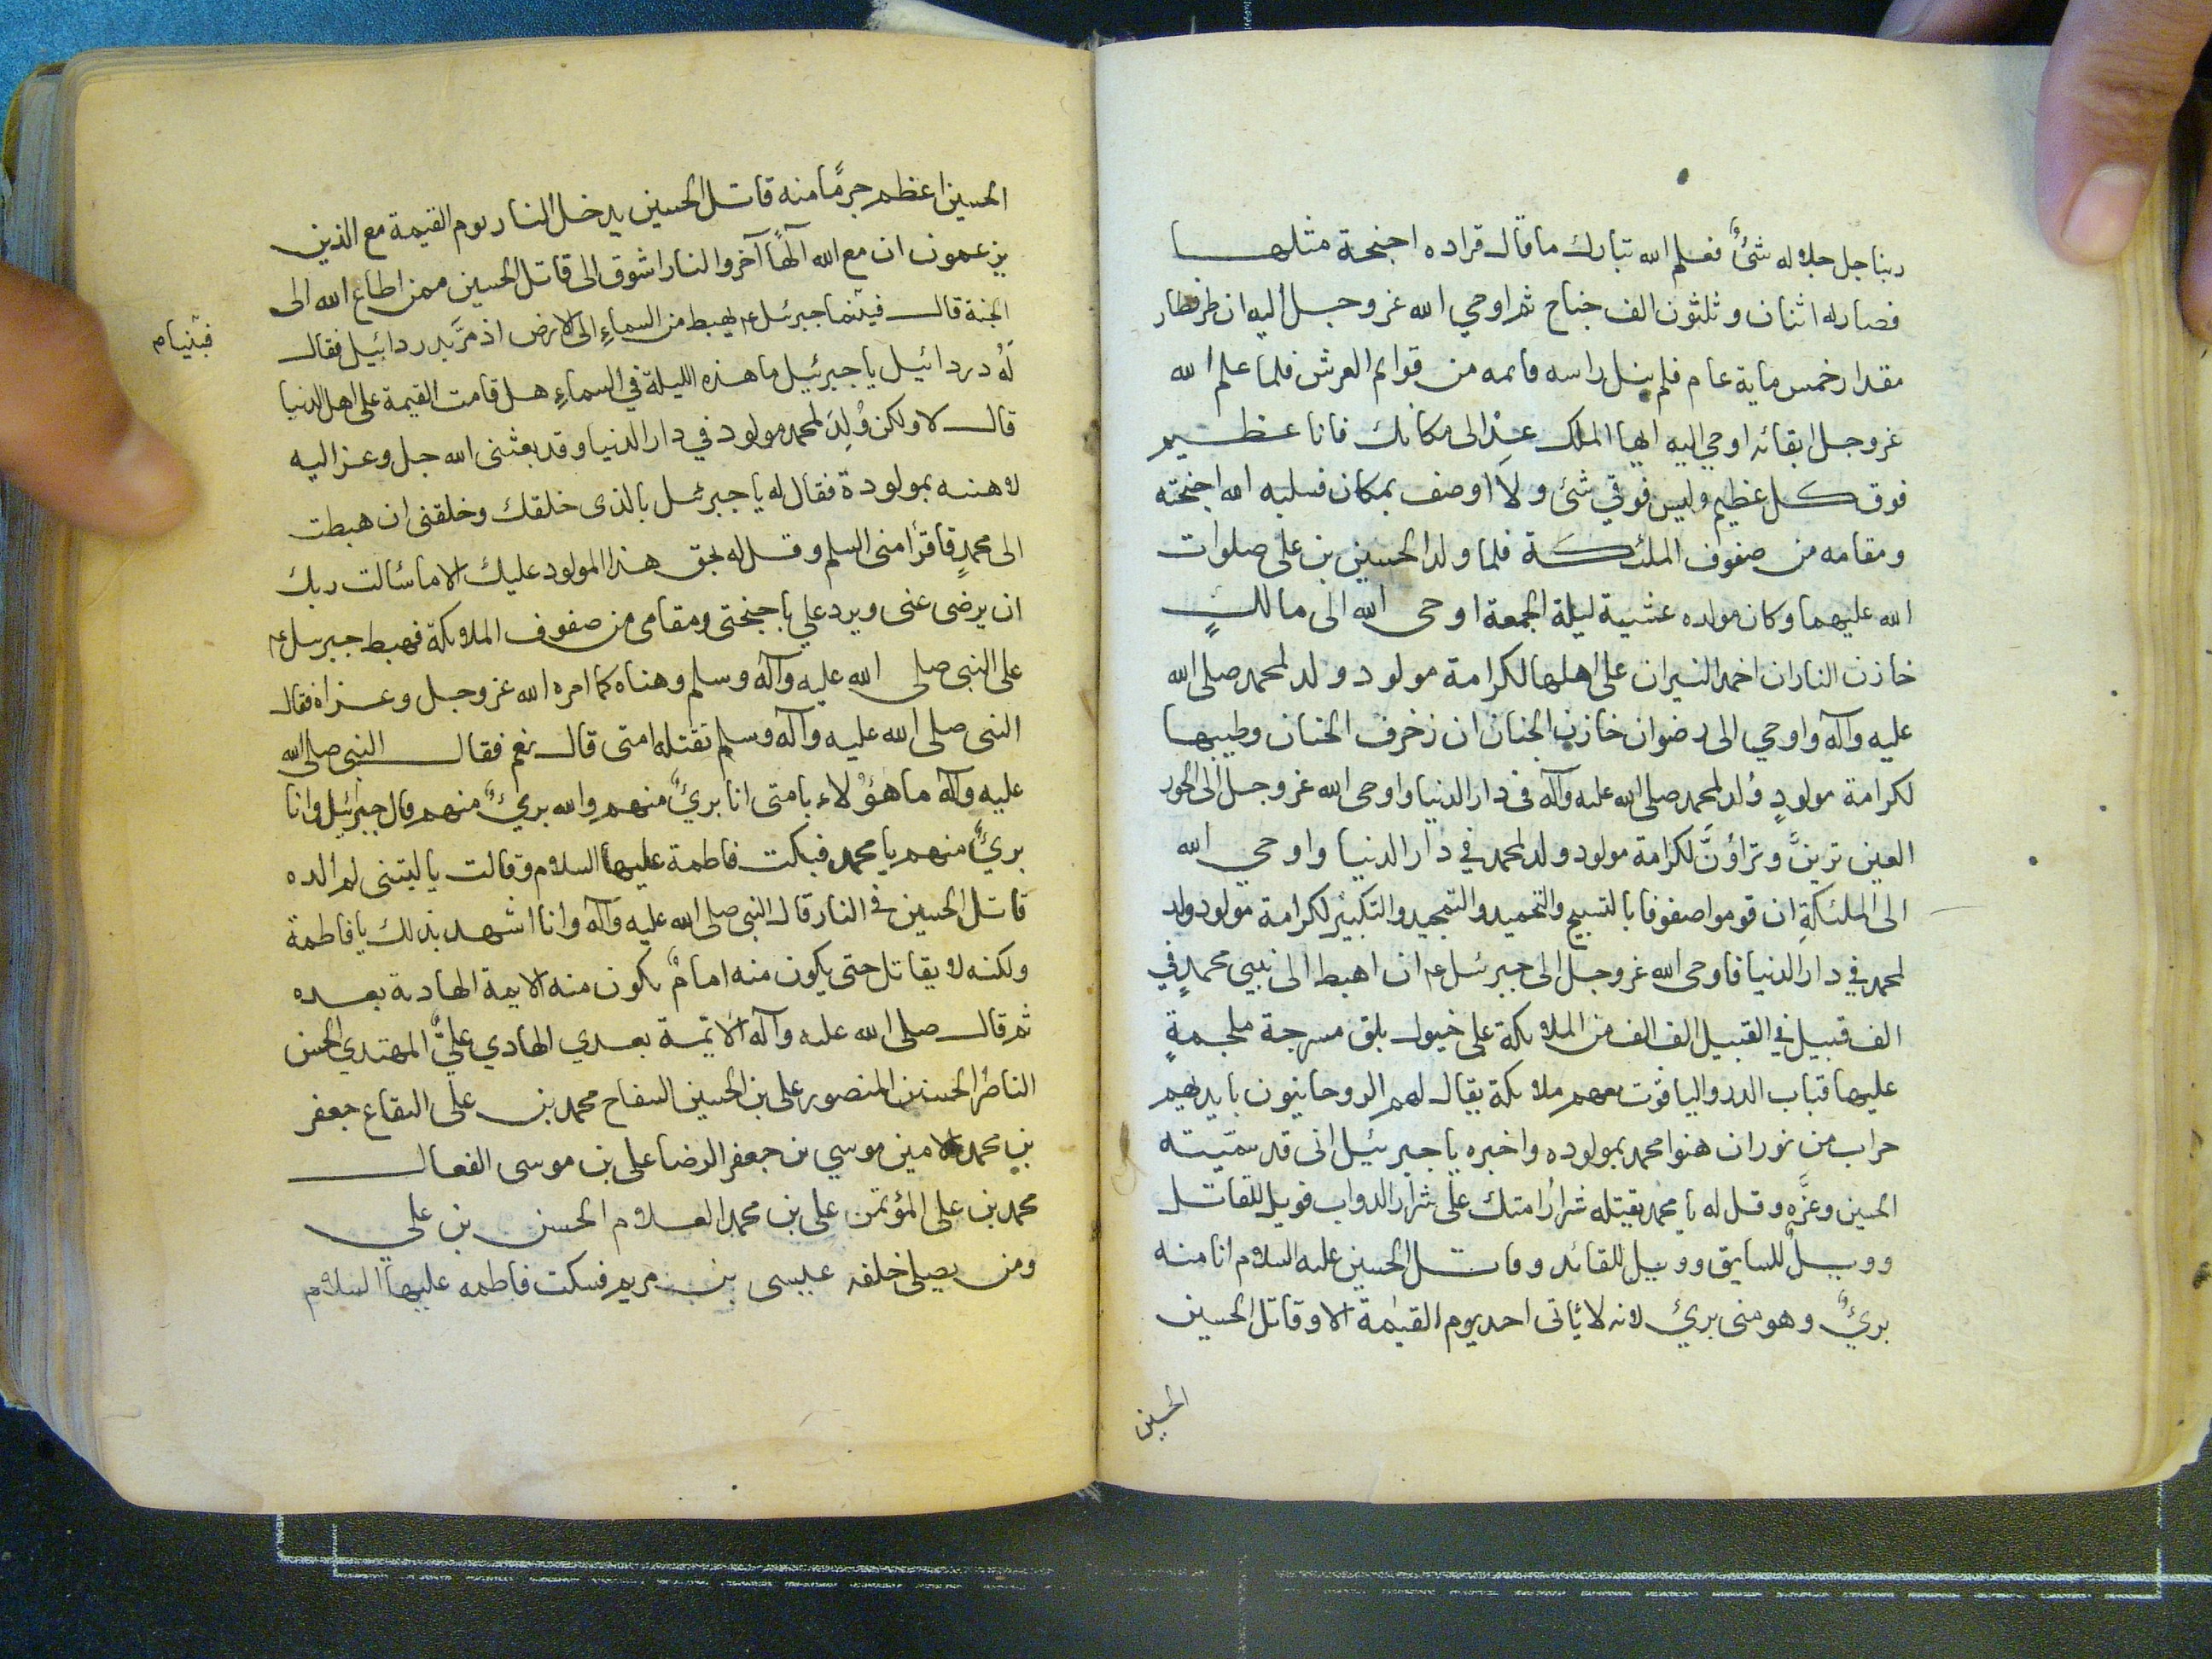 ربنا جل جلاله شئٌ فعلم الله تبارك ما قال فزاده اجنحة مثلها
فصار له اثنان وثلثون الف جناح ثم اوحي الله عز وجل اليه ان طر فطار
مقدار خمس ماية عام فلم ينل راسه قايمه من قوايم العرش فلما علم الله
عز وجل ابقائه اوحي اليه ايها الملك عد الى مكانك فانا عظيم
فوق كل عظيم وليس فوقي شئ ولا اوصف بمكان فسلبه الله اجنحته
ومقامه من صفوف الملئكة فلما ولد الحسين بن على صلوات
الله عليهما وكان مولده عشية ليلة الجمعة اوحى الله الى مالكٍ
خازن النار ان اخمد النيران على اهلها لكرامة مولود ولد لمحمد صلى الله
عليه وآله واوحي الى رضوان خازن الجنان ان زخرف الجنان وطيبها
لكرامة مولودٍ وُلد لمحمد صلى الله عليه وآله في دار الدنيا واوحى الله عز وجل الى الحور
العين تزينَّ وتزاوُنَّ لكرامة مولود ولد لمحمد في دار الدنيا واوحي الله
الى الملئكةِ ان قوموا صفوفا بالتسبيح والتحميد والتمجيد والتكبير لكرامة مولود ولد
لمحمد في دار الدنيا فاوحى الله عز وجل الى جبرئيل ع ان اهبط الى نبيي محمدٍ في
الف قبيل في القبيل الف الف من الملايكة على خيول بلق مسرجة ملجمةٍ
عليها قباب الدر والياقوت معهم ملايكة يقال لهم الروحانيون بايديهم
حراب من نور ان هنوا محمد بمولوده واخبره يا جبرئيل انى قد سمّيته
الحسين وعزِّه وقل له يا محمد يقتله شرارُ امتك على شرار الدواب فويل للقاتل
وويلٌ للسايق وويل للقائد وقاتل الحسين عليه السلام انا منه
بريٌ وهو منى بريٌ لانه لا ياتى احد يوم القيمة الا وقاتل الحسين
الحسين
الحسين اعظم جرمًا منه قاتل الحسين يدخل النار يوم القيمة مع الذين
يزعمون ان مع الله آلهًا آخر والنار اشوق الى قاتل الحسين ممن اطاع الله الى
الجنة قال فبينما جبرئيل ع يهبط من السماءِ الى الارض اذ مرَّ بدردائيل فقال
لهُ دردائيل يا جبرئيل ما هذه الليلة في السماءِ هل قامت القيمة على اهل الدنيا
قال لا ولكن وُلِدَ لمحمد مولود في دار الدنيا وقد بعثنى الله جل وعز اليه
لاهنيه بمولودة فقال له يا جبرئيل بالذى خلقك وخلقنى ان هبطت
الى محمدٍ فاقرأ منى السلم وقل له بحق هذا المولود عليك الا ما سئالت ربك
ان يرضى عنى ويرد علي باجنحتى ومقامى من صفوف الملايكة فهبط جبرئيل ع
على النبى صلى الله عليه وآله وسلم وهناه كما امره الله عز وجل وعزاه فقال
النبى صلى الله عليه وآله وسلم تقتله امتى قال نعم فقال النبى صلى الله
عليه وآله ما هؤلاء بامتى انا بريٌ منهم والله بريٌ منهم قال جبرئيل وانا
بريٌ منهم يا محمد فبكت فاطمة عليها السلام وقالت يا ليتنى لم الده
قاتل الحسين في النار قال النبى صلى الله عليه وآله وانا اشهد بذلك يا فاطمة
ولكنه لا يقاتل حتى يكون منه امامٌ يكون منه الايمة الهادية بعده
ثم قال صلى الله عليه وآله الائمة بعدي الهادي عليٌّ المهتدي الحسن
الناصر الحسين المنصور على بن الحسين السفاح محمد بن على النفاع جعفر
بن محمد الامين موسي بن جعفر الرضا على بن موسى الفعال
محمد بن على المؤتمن على بن محمد العلام الحسن بن علي
ومن يصلى خلفه عيسى بن مريم فسكت فاطمه عليها السلام